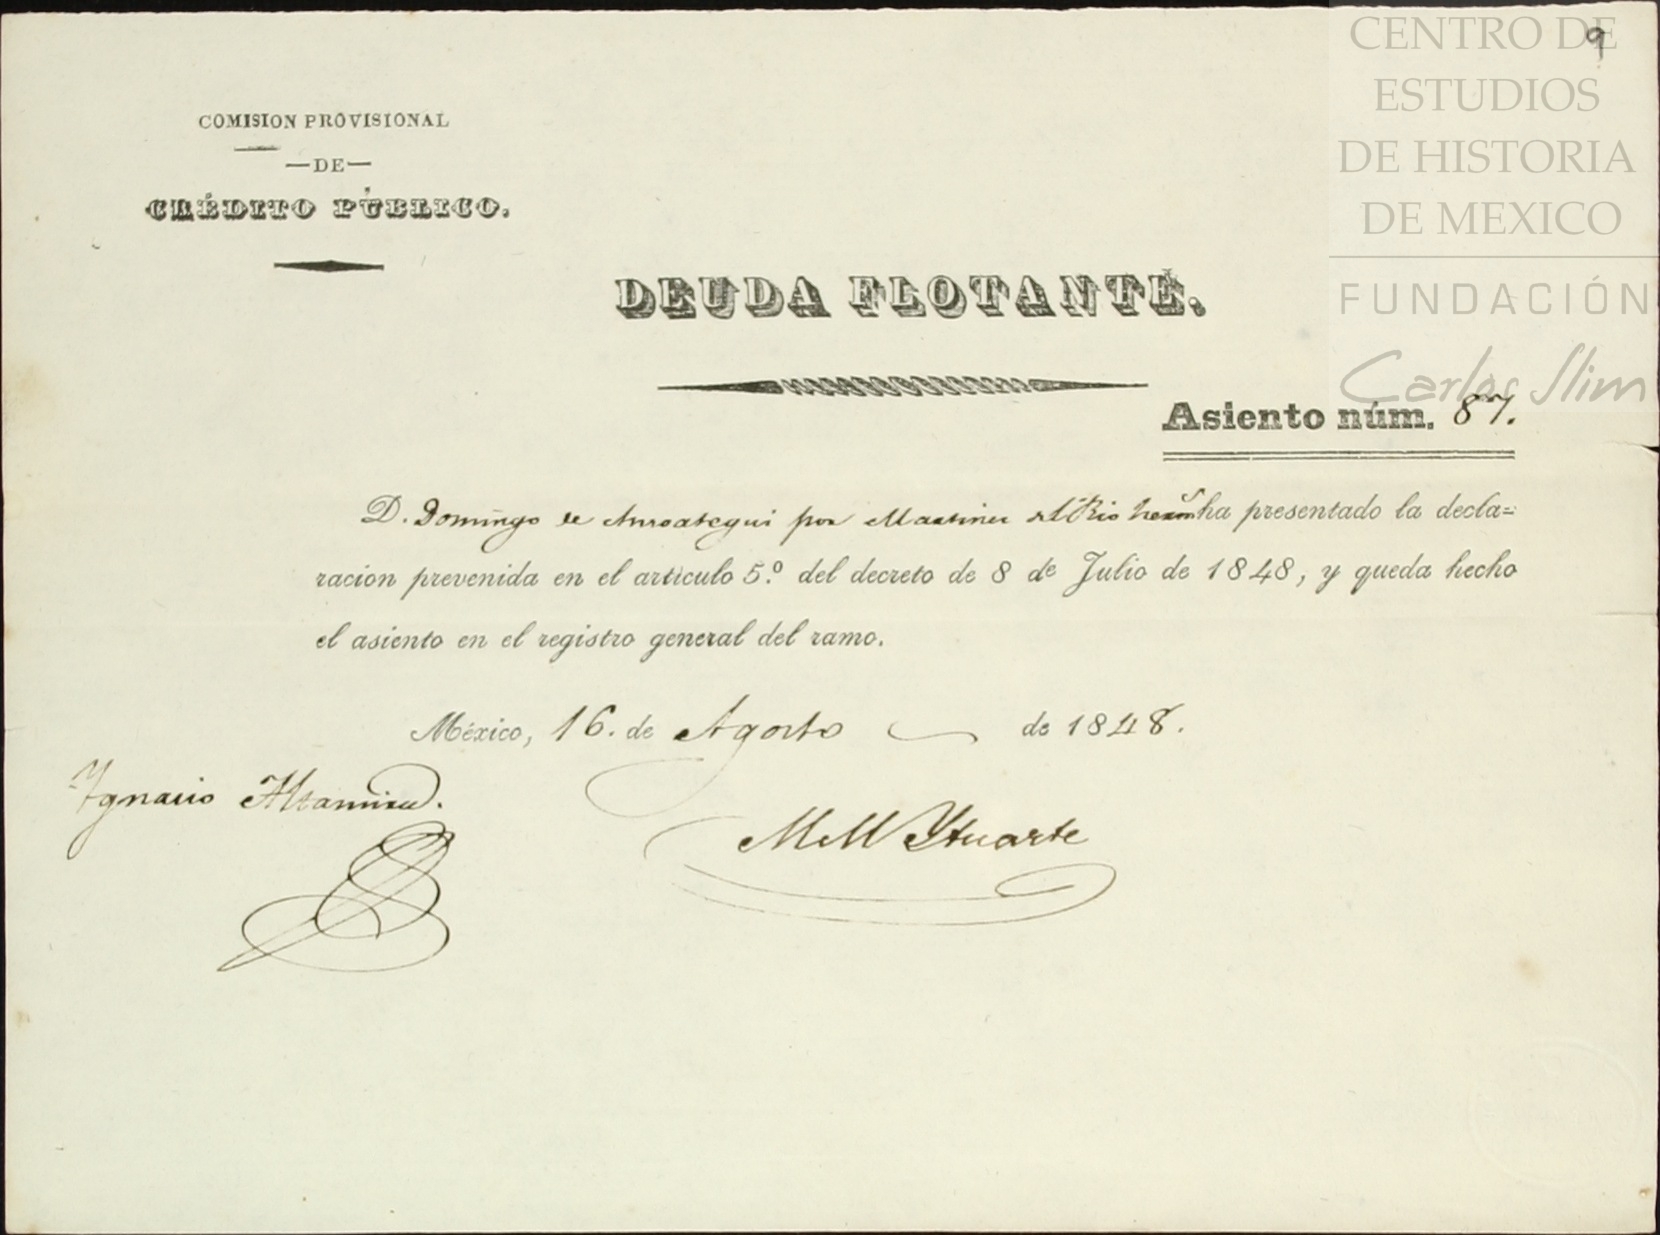 9
CENTRO DE
ESTUDIOS
DE HISTORIA
DE MEXICO
FUNDACIÓN
Carlos Slim
COMISION PROVISIONAL
—DE—
CRÉDITO PÚBLICO.
DEUDA FLOTANTE.
Asiento núm. 87.
D. Domingo de Ansoategui por Martinez del Rio herms ha presentado la decla=
racion prevenida en el artículo 5.º del decreto de 8 de Julio de 1848, y queda hecho
el asiento en el registro general del ramo.
México, 16. de Agosto de 1848.
Ygnacio Altamira.
Ml M Ytuarte